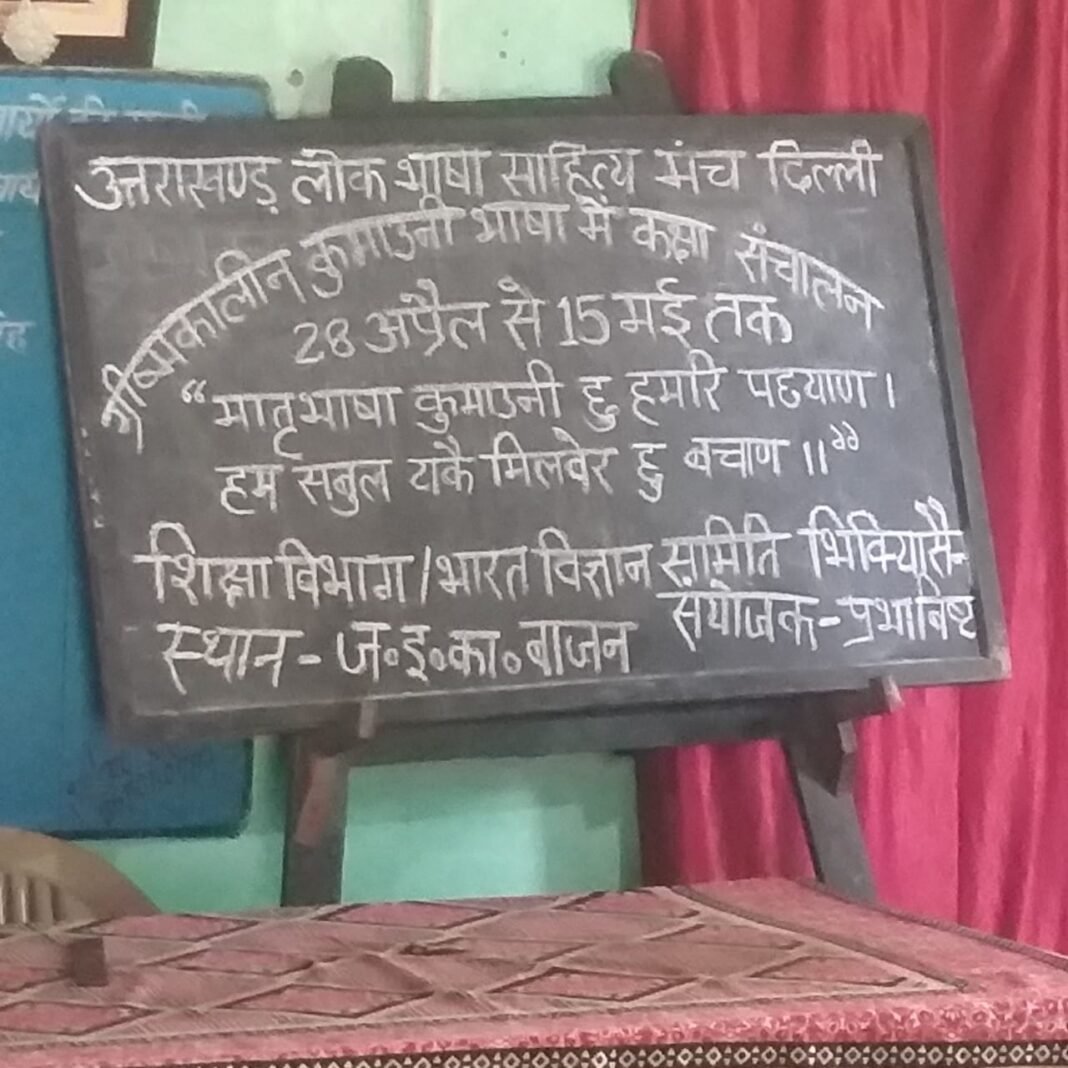 उत्तराखण्ड़ लोक भाषा साहित्य मंच दिल्ली
ग्रीष्मकालीन कुमाउनी भाषा में कक्षा संचालन
28 अप्रैल से 15 मई तक
“मातृभाषा कुमाउनी हु हमरि पछयाण ।
हम सबुल यकै मिलबेर हु बचाण ॥”
शिक्षा विभाग / भारत विज्ञान समिति भिकियासैं-
संयोजक - प्रभा बिष्ट
स्थान - ज॰इ॰का॰ बाजन